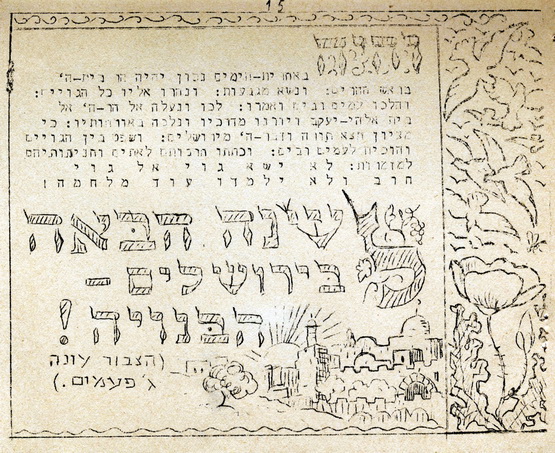 15
באחרית-הימים נכון יהיה הר בית-ה'
בראש ההרים: ונשא מגבעות: ונהרו אליו כל הגויים:
והלכו עמים רבים ואמרו: לכו ונעלה אל הר-ה' אל
בית אלהי-יעקב ויורנו מדרכיו ונלכה באורחותיו: כי
מציון תצא תורה ודבר-ה' מירושלים: ושפט בין הגויים
והוכיח לעמים רבים: וכתתו חרבותם לאתים וחניתותיהם
למזמרות: לא ישא גוי אל גוי
חרב ולא ילמדו עוד מלחמה!
לשנה הבאה
בירושלים -
הבנויה!
(הצבור עונה
ג' פעמים.)